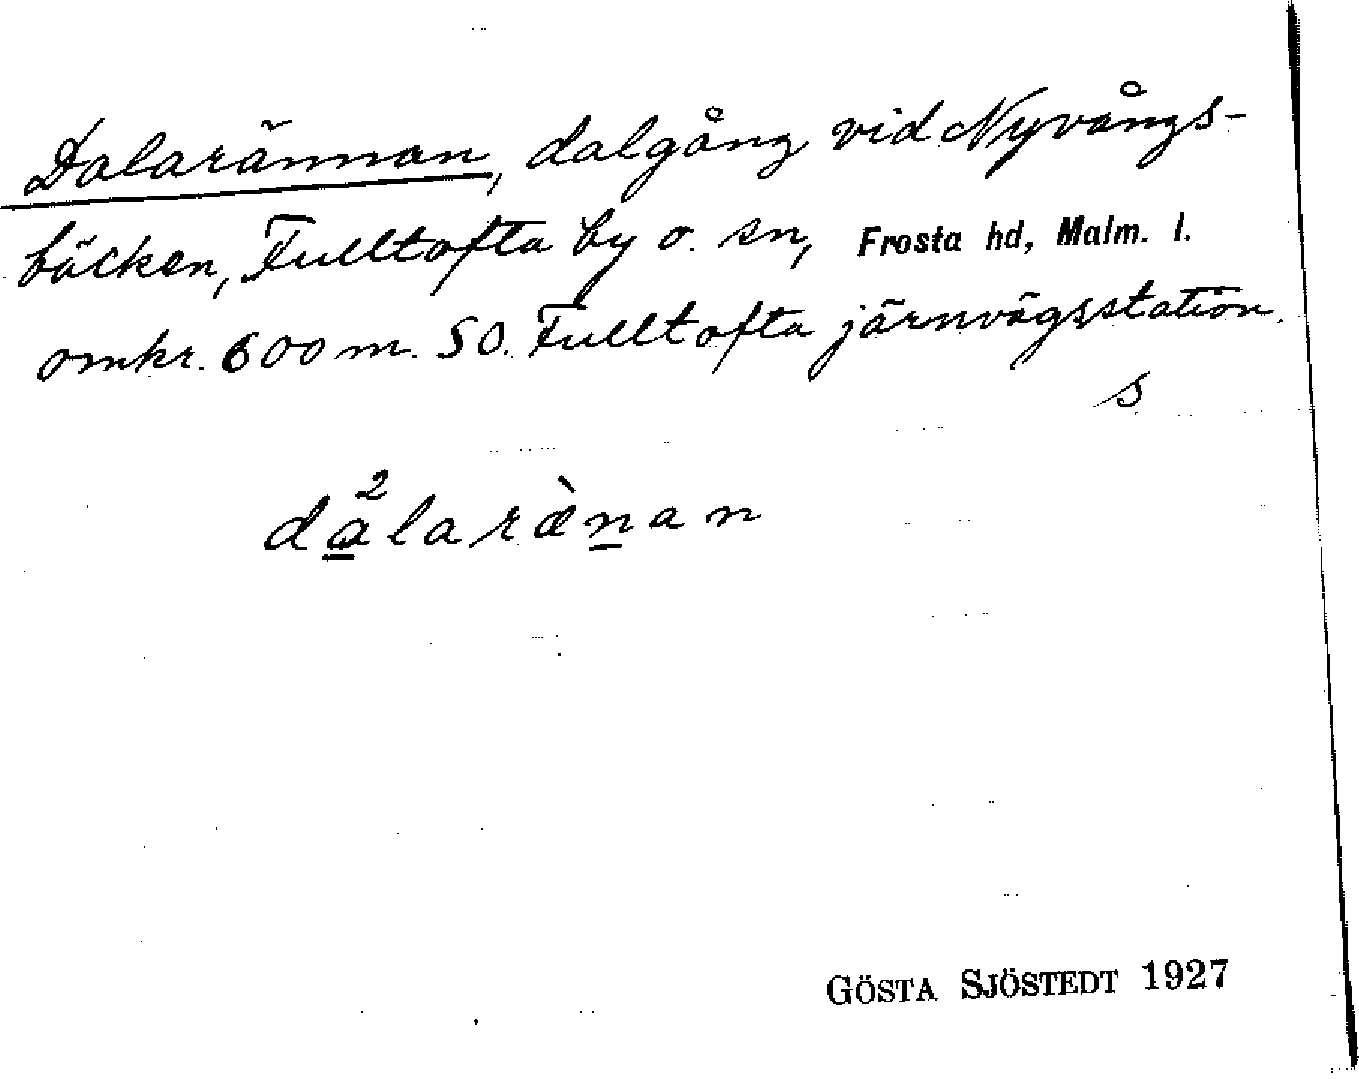 Dalarännan, dalgång vid Nyvångs-
bäcken, Fulltofta by o. sn, Frosta hd, Malm. l.
omkr. 600 m. SO. Fulltofta järnvägsstation.
s
da̲²laræ̀n̲an
GÖSTA SJÖSTEDT 1927